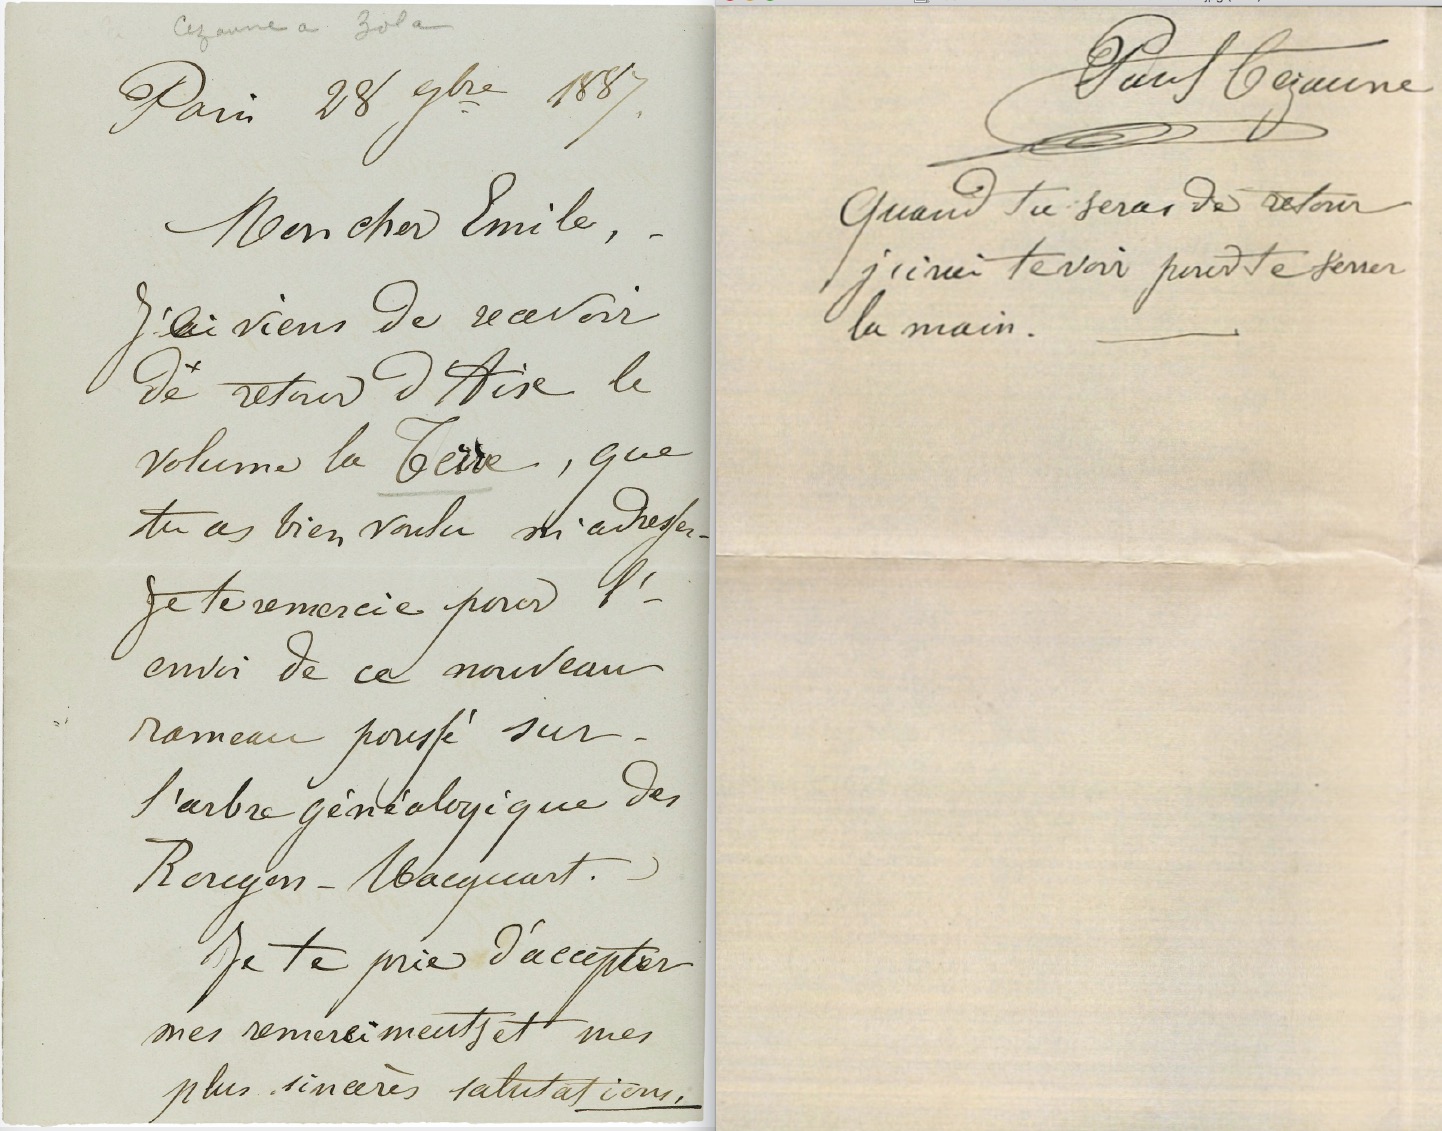 Cezanne a Zola
Paris 28 9bre 1887.
Mon cher Emile, -
J'ai viens de recevoir
de retour d'Aix le
volume la Terre, que
tu as bien voulu m'adresser -
Je te remercie pour l'-
envoi de ce nouveau
rameau poussé sur -
l'arbre généalogique des
Rougon - Macquart.
Je te prie d'accepter
mes remerciments et mes
plus sincères salutations.
Paul Cezanne
Quand tu seras de retour
j'irai te voir pour te serrer
la main.